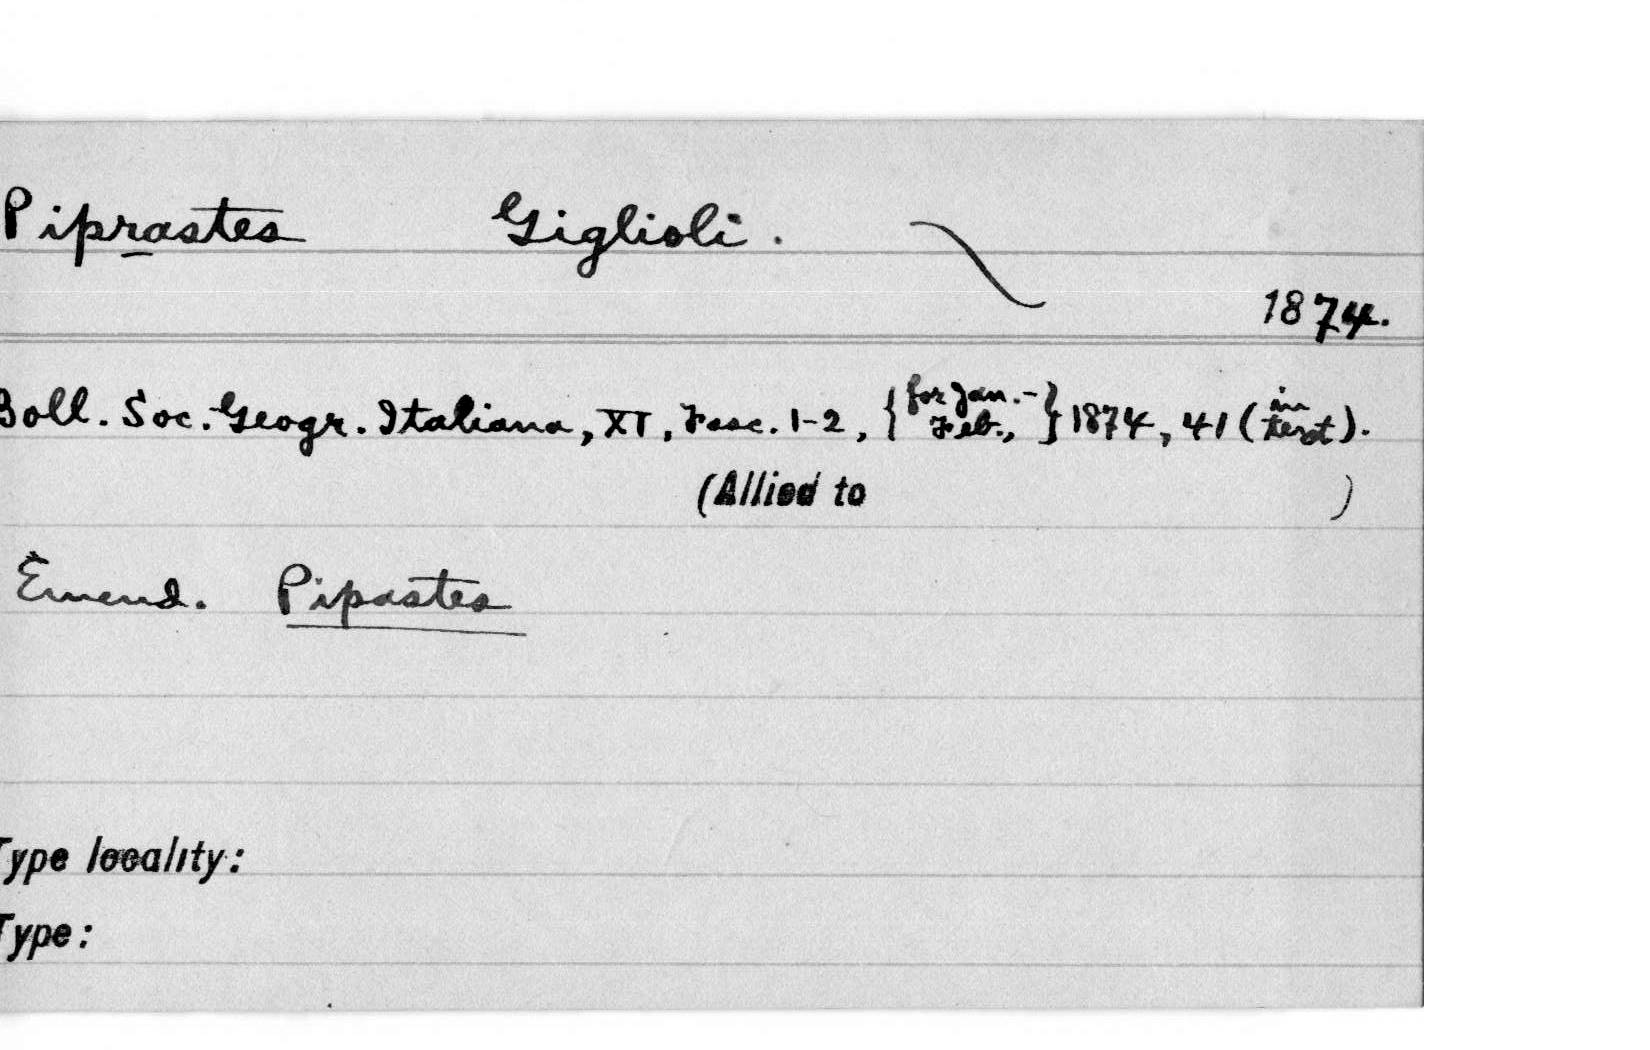 Piprastes Giglioli.
1874.
Boll. Soc. Geogr. Italiana, XI, Fasc. 1-2, {for Jan.-Feb.,} 1874, 41 (in text).
(Allied to )
Emend. Pipastes
Type locality:
Type: